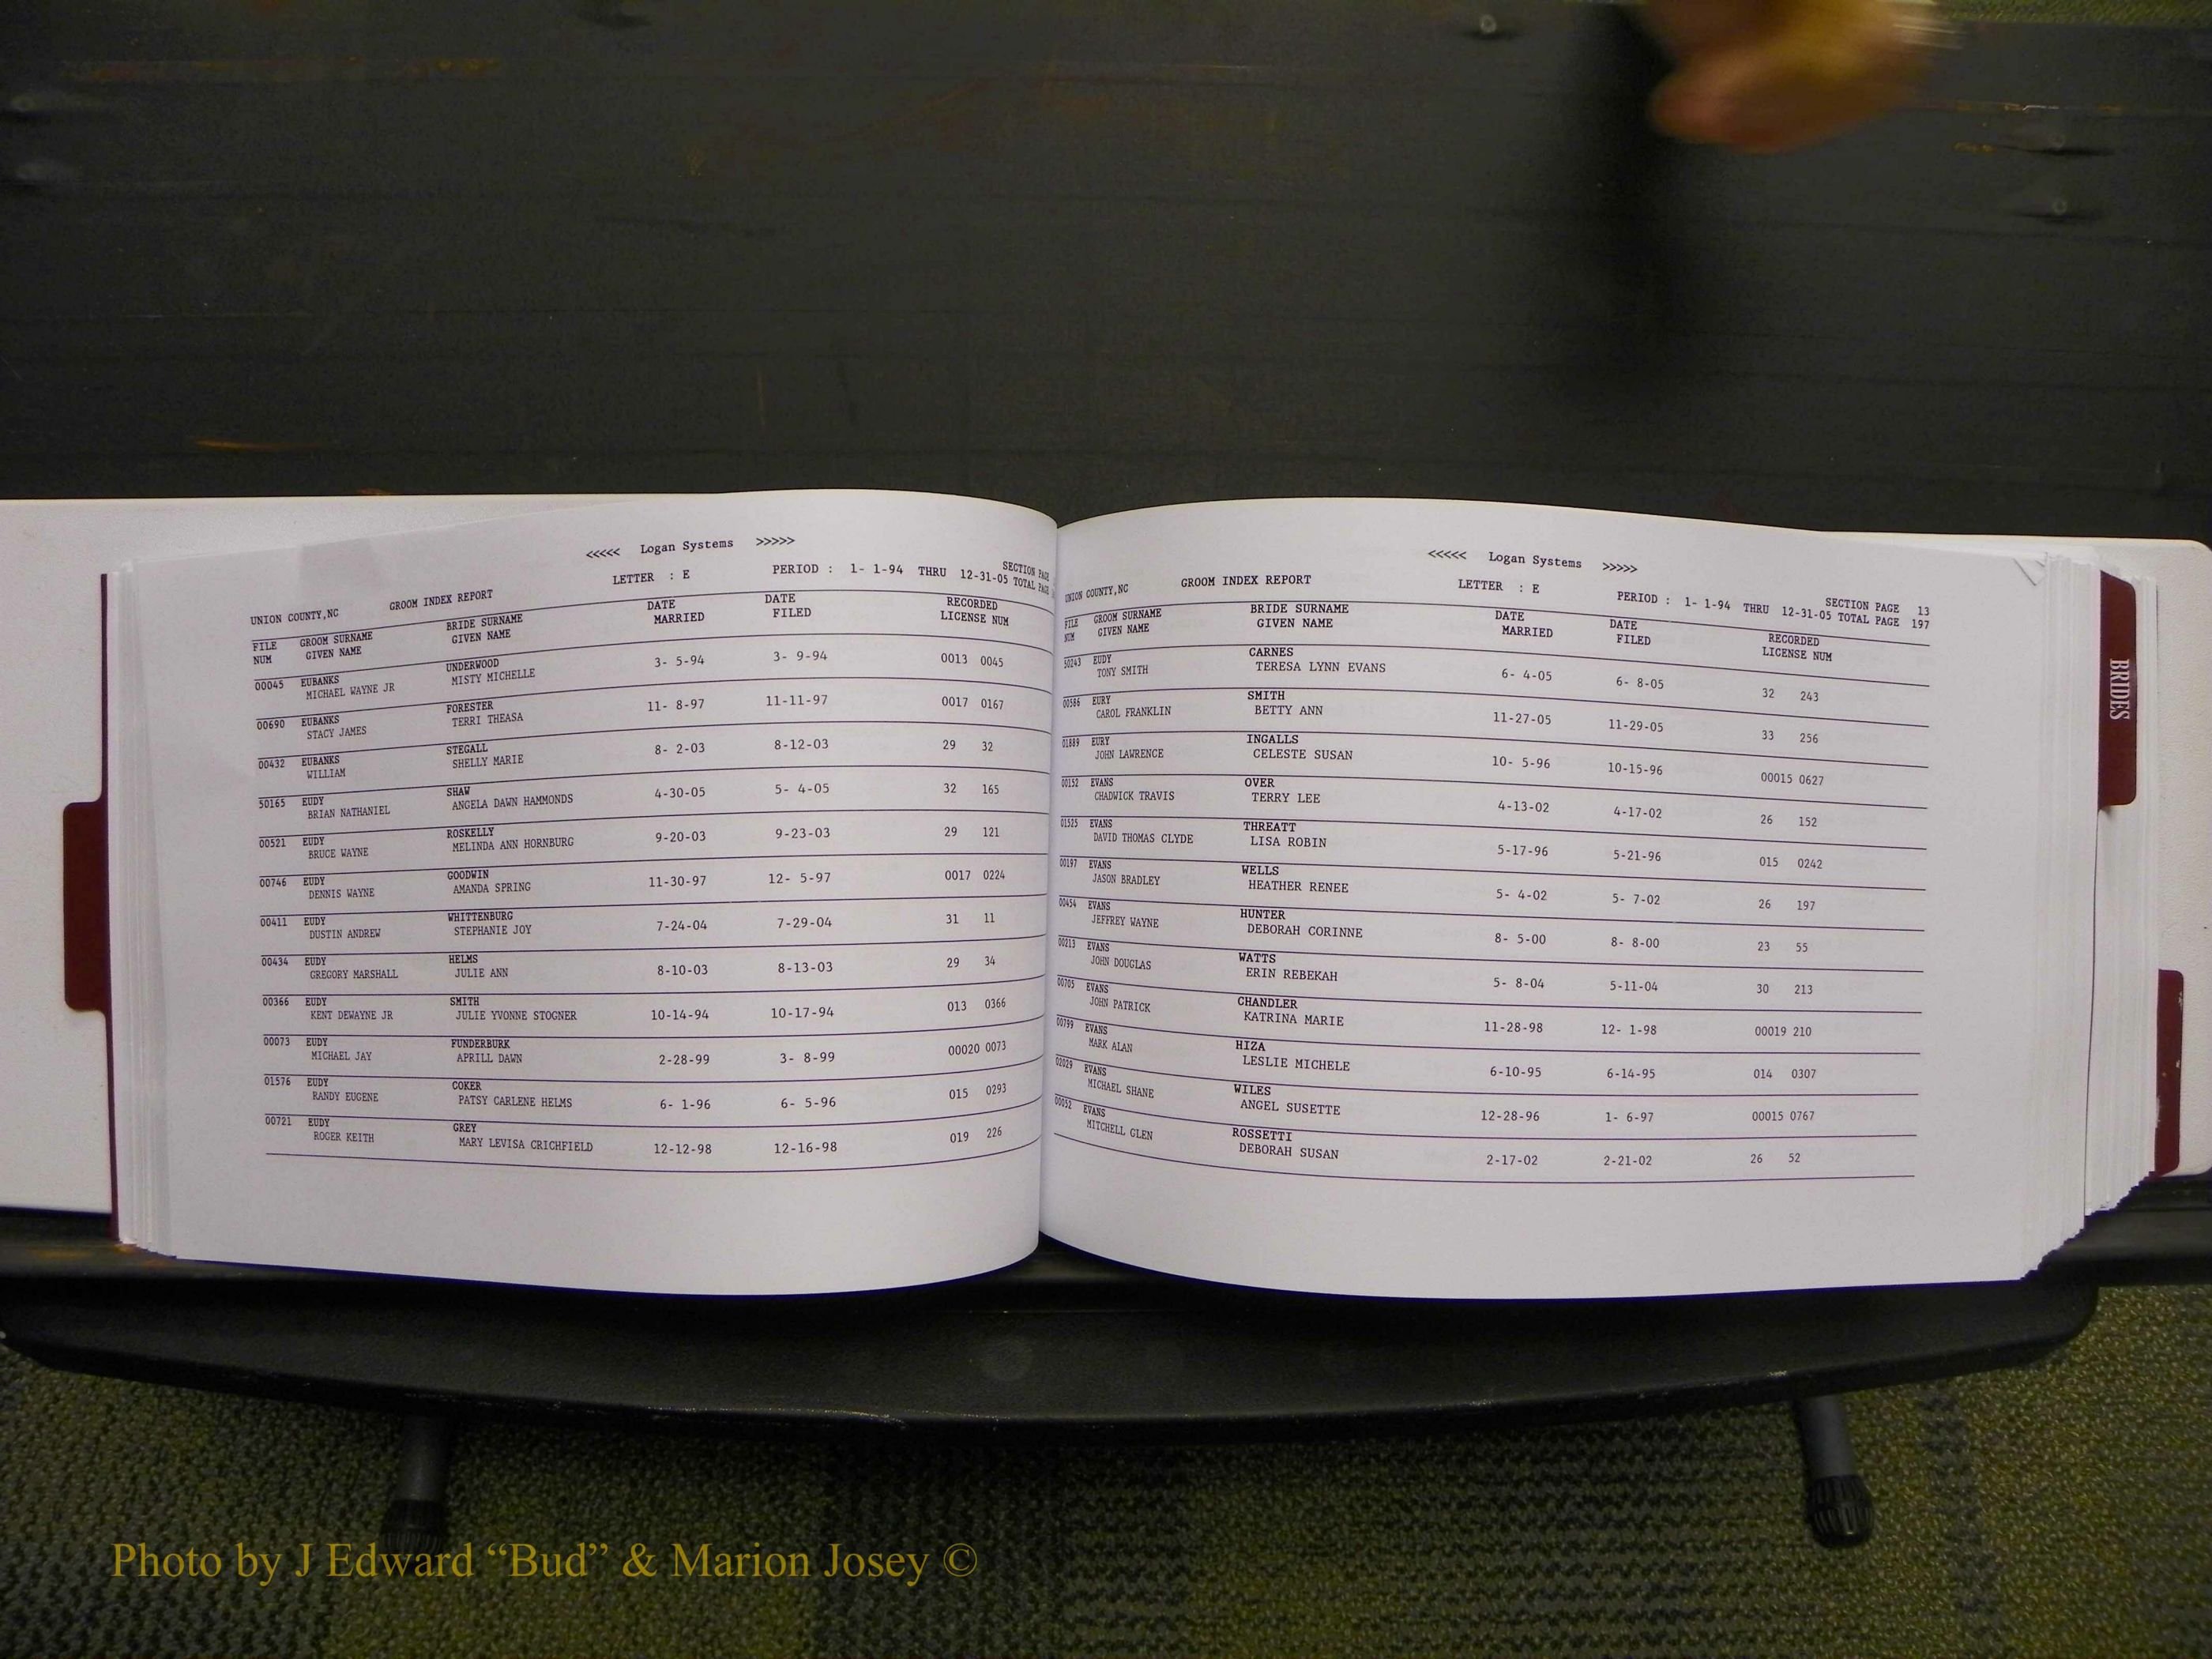 <<<<< Logan Systems >>>>>
UNION COUNTY,NC GROOM INDEX REPORT LETTER : E PERIOD : 1- 1-94 THRU 12-31-05 SECTION PAGE
TOTAL PAGE
FILE GROOM SURNAME BRIDE SURNAME DATE DATE RECORDED
NUM GIVEN NAME GIVEN NAME MARRIED FILED LICENSE NUM
00045 EUBANKS UNDERWOOD 3- 5-94 3- 9-94 0013 0045
MICHAEL WAYNE JR MISTY MICHELLE
00690 EUBANKS FORESTER 11- 8-97 11-11-97 0017 0167
STACY JAMES TERRI THEASA
00432 EUBANKS STEGALL 8- 2-03 8-12-03 29 32
WILLIAM SHELLY MARIE
50165 EUDY SHAW 4-30-05 5- 4-05 32 165
BRIAN NATHANIEL ANGELA DAWN HAMMONDS
00521 EUDY ROSKELLY 9-20-03 9-23-03 29 121
BRUCE WAYNE MELINDA ANN HORNBURG
00746 EUDY GOODWIN 11-30-97 12- 5-97 0017 0224
DENNIS WAYNE AMANDA SPRING
00411 EUDY WHITTENBURG 7-24-04 7-29-04 31 11
DUSTIN ANDREW STEPHANIE JOY
00434 EUDY HELMS 8-10-03 8-13-03 29 34
GREGORY MARSHALL JULIE ANN
00366 EUDY SMITH 10-14-94 10-17-94 013 0366
KENT DEWAYNE JR JULIE YVONNE STOGNER
00073 EUDY FUNDERBURK 2-28-99 3- 8-99 00020 0073
MICHAEL JAY APRILL DAWN
01576 EUDY COKER 6- 1-96 6- 5-96 015 0293
RANDY EUGENE PATSY CARLENE HELMS
00721 EUDY GREY 12-12-98 12-16-98 019 226
ROGER KEITH MARY LEVISA CRICHFIELD
<<<<< Logan Systems >>>>>
UNION COUNTY,NC GROOM INDEX REPORT LETTER : E PERIOD : 1- 1-94 THRU 12-31-05 SECTION PAGE 13
TOTAL PAGE 197
FILE GROOM SURNAME BRIDE SURNAME DATE DATE RECORDED
NUM GIVEN NAME GIVEN NAME MARRIED FILED LICENSE NUM
50243 EUDY CARNES 6- 4-05 6- 8-05 32 243
TONY SMITH TERESA LYNN EVANS
00586 EURY SMITH 11-27-05 11-29-05 33 256
CAROL FRANKLIN BETTY ANN
01889 EURY INGALLS 10- 5-96 10-15-96 00015 0627
JOHN LAWRENCE CELESTE SUSAN
00152 EVANS OVER 4-13-02 4-17-02 26 152
CHADWICK TRAVIS TERRY LEE
01525 EVANS THREATT 5-17-96 5-21-96 015 0242
DAVID THOMAS CLYDE LISA ROBIN
00197 EVANS WELLS 5- 4-02 5- 7-02 26 197
JASON BRADLEY HEATHER RENEE
00454 EVANS HUNTER 8- 5-00 8- 8-00 23 55
JEFFREY WAYNE DEBORAH CORINNE
00213 EVANS WATTS 5- 8-04 5-11-04 30 213
JOHN DOUGLAS ERIN REBEKAH
00705 EVANS CHANDLER 11-28-98 12- 1-98 00019 210
JOHN PATRICK KATRINA MARIE
00799 EVANS HIZA 6-10-95 6-14-95 014 0307
MARK ALAN LESLIE MICHELE
02029 EVANS WILES 12-28-96 1- 6-97 00015 0767
MICHAEL SHANE ANGEL SUSETTE
00052 EVANS ROSSETTI 2-17-02 2-21-02 26 52
MITCHELL GLEN DEBORAH SUSAN
BRIDES
Photo by J Edward “Bud” & Marion Josey ©